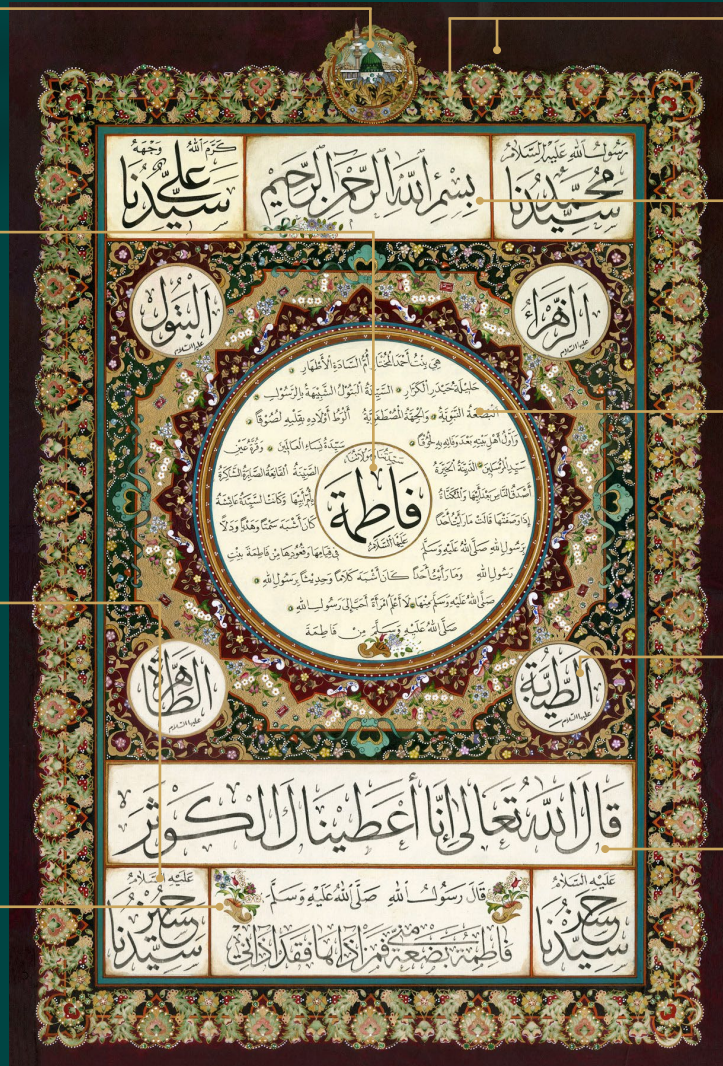 رسول الله عليه السلام
سيدنا محمد
بِسْمِ اللهِ الرَّحْمنِ الرَّحِيمِ
كَرَّمَ اللهُ وَجْهَهُ
سيدنا علي
الزَّهْرَاءُ
عليها السلام
البَتُول
عليها السلام
هِيَ بِنْتُ أَحْمَدَ المُخْتَارِ أُمُّ السَّادَةِ الأَطْهَارِ
حَلِيلَةُ حَيْدَرِ الكَرَّارِ السَّيِّدَةُ البَتُولُ الشَّبِيهَةُ بِالرَّسُولِ
البَضْعَةُ النَّبَوِيَّةُ وَالجِهَةُ المُصْطَفَوِيَّةُ أَلْوَطُ أَوْلَادِهِ بِقَلْبِهِ لُصُوقًا
وَأَوَّلُ أَهْلِ بَيْتِهِ بَعْدَ وَفَاتِهِ بِهِ لُحُوقًا سَيِّدَةُ نِسَاءِ العَالَمِينَ وَقُرَّةُ عَيْنِ
سَيِّدِ المُرْسَلِينَ الدَّيِّنَةُ الخَيِّرَةُ الصَّيِّنَةُ القَانِعَةُ الصَّابِرَةُ الشَّاكِرَةُ
أَصْدَقُ النَّاسِ بَعْدَ أَبِيهَا وَالمُكَنَّاةُ بِأُمِّ أَبِيهَا وَكَانَتِ السَّيِّدَةُ عَائِشَةُ
إِذَا وَصَفَتْهَا قَالَتْ مَا رَأَيْتُ أَحَدًا كَانَ أَشْبَهَ سَمْتًا وَهَدْيًا وَدَلًّا
بِرَسُولِ اللهِ صَلَّى اللهُ عَلَيْهِ وَسَلَّمَ فِي قِيَامِهَا وَقُعُودِهَا مِنْ فَاطِمَةَ بِنْتِ
رَسُولِ اللهِ وَمَا رَأَيْتُ أَحَدًا كَانَ أَشْبَهَ كَلَامًا وَحَدِيثًا بِرَسُولِ اللهِ
صَلَّى اللهُ عَلَيْهِ وَسَلَّمَ مِنْهَا لَا أَعْلَمُ امْرَأَةً أَحَبَّ إِلَى رَسُولِ اللهِ
صَلَّى اللهُ عَلَيْهِ وَسَلَّمَ مِنْ فَاطِمَةَ
سيدتنا ومولاتنا
فَاطِمَة
عليها السلام
الطَّيِّبَةُ
عليها السلام
الطَّاهِرَةُ
عليها السلام
قَالَ اللهُ تَعَالَى إِنَّا أَعْطَيْنَاكَ الْكَوْثَرَ
عَلَيْهِ السَّلَامُ
سيدنا حسن
قَالَ رَسُولُ اللهِ صَلَّى اللهُ عَلَيْهِ وَسَلَّمَ
فَاطِمَةُ بَضْعَةٌ مِنِّي فَمَنْ آذَاهَا فَقَدْ آذَانِي
عَلَيْهِ السَّلَامُ
سيدنا حسين